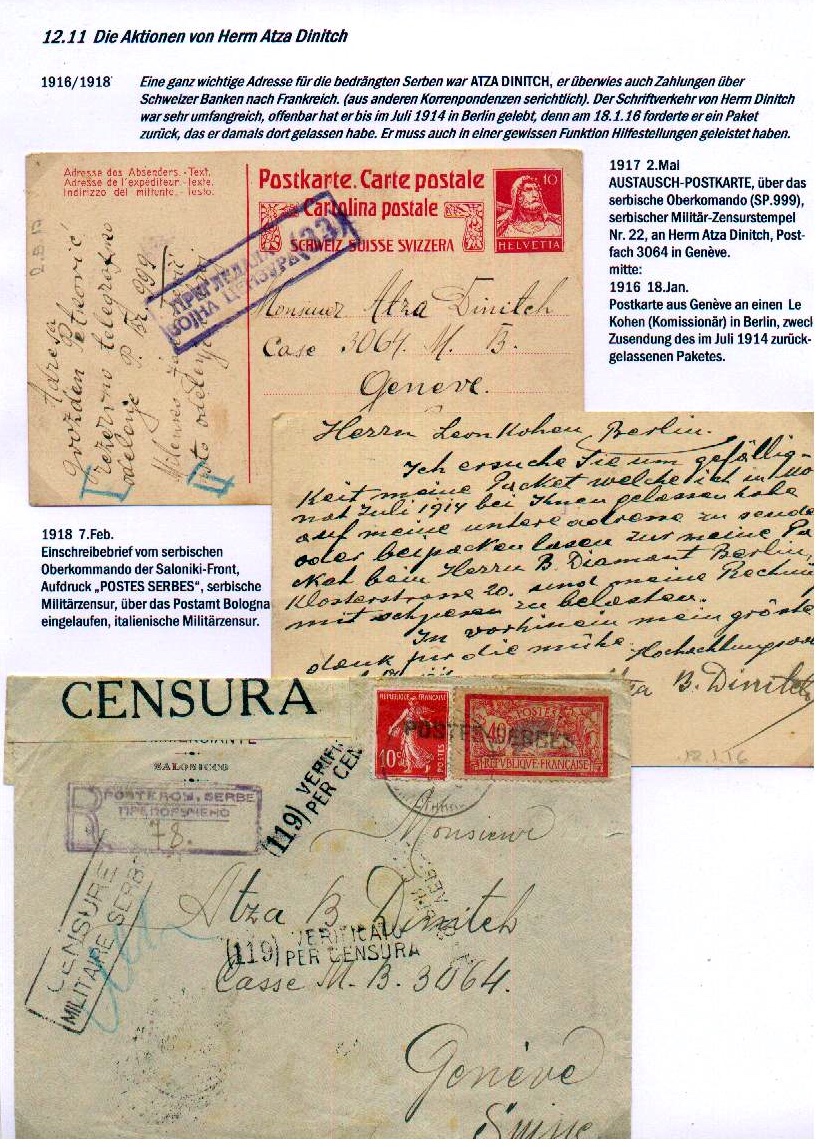 12.11 Die Aktionen von Herrn Atza Dinitch
1916/1918 Eine ganz wichtige Adresse für die bedrängten Serben war ATZA DINITCH, er überwies auch Zahlungen über
Schweizer Banken nach Frankreich. (aus anderen Korrenpondenzen serichtlich). Der Schriftverkehr von Herrn Dinitch
war sehr umfangreich, offenbar hat er bis im Juli 1914 in Berlin gelebt, denn am 18.1.16 forderte er ein Paket
zurück, das er damals dort gelassen habe. Er muss auch in einer gewissen Funktion Hilfestellungen geleistet haben.
Adresse des Absenders. - Text.
Adresse de l'expéditeur. - Texte.
Indirizzo del mittente. - Testo.
Postkarte. Carte postale
Cartolina postale
SCHWEIZ SUISSE SVIZZERA
10
HELVETIA
Adresa
Gvozden Petković
rezervno telegrafsko
odelenje P. Br. 999
Milensko
isto odelenje
I II
Monsieur Atza Dinitch
Case 3064. M. B.
Geneve.
1917 2.Mai
AUSTAUSCH-POSTKARTE, über das
serbische Oberkomando (SP.999),
serbischer Militär-Zensurstempel
Nr. 22, an Herrn Atza Dinitch, Post-
fach 3064 in Genève.
mitte:
1916 18.Jan.
Postkarte aus Genève an einen Le
Kohen (Komissionär) in Berlin, zwecl
Zusendung des im Juli 1914 zurück-
gelassenen Paketes.
Herrn Leon Kohen, Berlin.
Ich ersuche Sie um gefällig-
keit meine Packet welche ich in Mo
nat Juli 1914 bei Ihnen gelassen habe
auf meine untere adresse zu sende
oder beipacken lasen zur meine Pa
cket beim Herrn B. Diamant Berlin,
Klosterstrasse 20. und meine Rechnu
mit spesen zu belasten.
Im vorhinein mein grösste
dank für die mühe. Hochachtungsvo
B. Dinitch
12.1.16
1918 7.Feb.
Einschreibebrief vom serbischen
Oberkommando der Saloniki-Front,
Aufdruck „POSTES SERBES“, serbische
Militärzensur, über das Postamt Bologna
eingelaufen, italienische Militärzensur.
CENSURA
SALONICO
REPUBLIQUE FRANÇAISE
10c
POSTES
POSTES SERBES
POSTES
40c
REPUBLIQUE FRANÇAISE
(119) VERIFI
PER CEN
R
SERBE
ПРЕПОРУЧЕНО
78.
CENSURE
MILITAIRE SERBE
Monsieur
Atza B. Dinitch
(119) VERIFICATO
PER CENSURA
Casse M. B. 3064.
Genève
Suisse